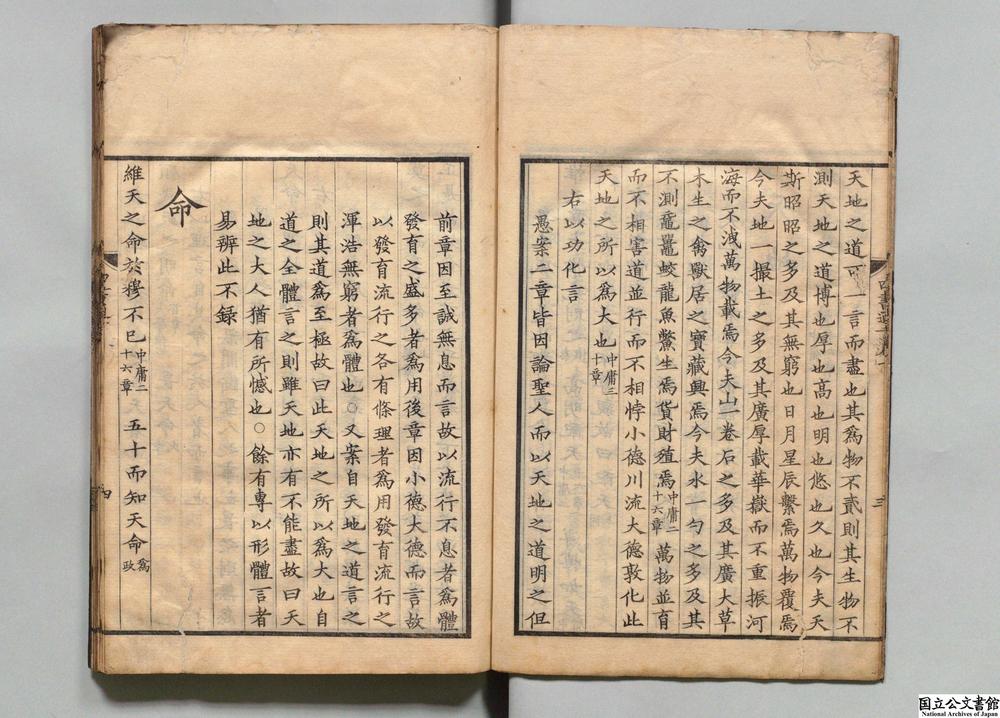 天地之道可一言而盡也其爲物不貳則其生物不
測天地之道博也厚也高也明也悠也久也今夫天
斯昭昭之多及其無窮也日月星辰繫焉萬物覆焉
今夫地一撮土之多及其廣厚載華嶽而不重振河
海而不洩萬物載焉今夫山一卷石之多及其廣大草
木生之禽獸居之寶藏興焉今夫水一勺之多及其
不測黿鼉蛟龍魚鱉生焉貨財殖焉中庸二十六章 萬物並育
而不相害道並行而不相悖小德川流大德敦化此
天地之所以爲大也中庸三十章
右以功化言
愚案二章皆因論聖人而以天地之道明之但
三
前章因至誠無息而言故以流行不息者爲體
發育之盛多者爲用後章因小德大德而言故
以發育流行之各有條理者爲用發育流行之
渾浩無窮者爲體也○又案自天地之道言之
則其道爲至極故曰此天地之所以爲大也自
道之全體言之則雖天地亦有不能盡故曰天
地之大人猶有所憾也○餘有專以形體言者
易辨此不錄
命
維天之命於穆不已中庸二十六章 五十而知天命爲政
四
国立公文書館
National Archives of Japan